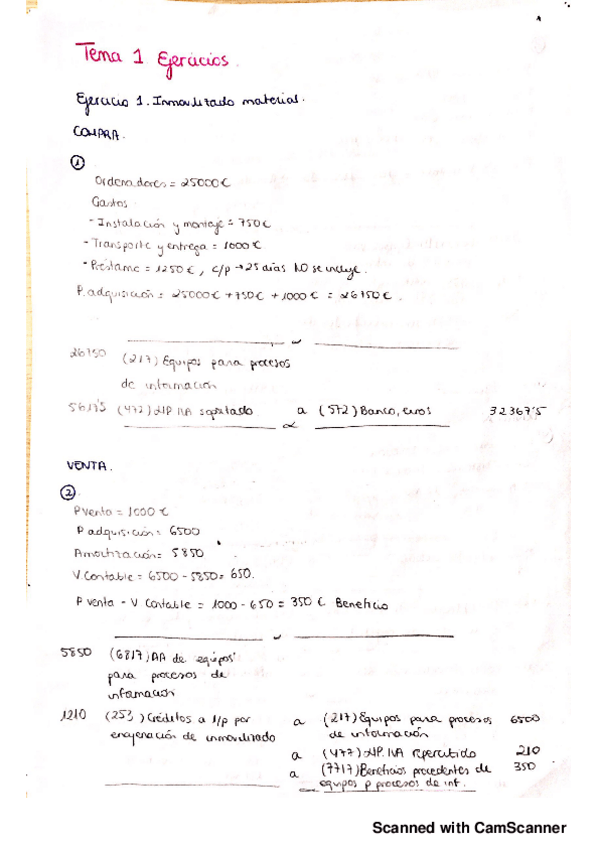 Tema 1 Ejercicios.
Ejercicio 1. Inmovilizado material.
COMPRA.
1
Ordenadores = 25000€
Gastos
- Instalación y montaje = 750€
- Transporte y entrega = 1000€
- Préstamo = 1250€, c/p → 25 días NO se incluye.
P. adquisición = 25000€ + 750€ + 1000€ = 26750€.
26750 (217) Equipos para procesos
de información
5617'5 (472) H.P. IVA soportado a (572) Banco, euros 32367'5
VENTA.
2
P venta = 1000€
P adquisición = 6500
Amortización = 5850
V. Contable = 6500 - 5850 = 650.
P venta - V Contable = 1000 - 650 = 350€ Beneficio
5850 (6817) AA de equipos
para procesos de
información
1210 (253) Créditos a l/p por a (217) Equipos para procesos 6500
enajenación de inmovilizado de información
a (477) H.P. IVA repercutido 210
a (7717) Beneficios procedentes de 350
equipos p procesos de inf.
Scanned with CamScanner